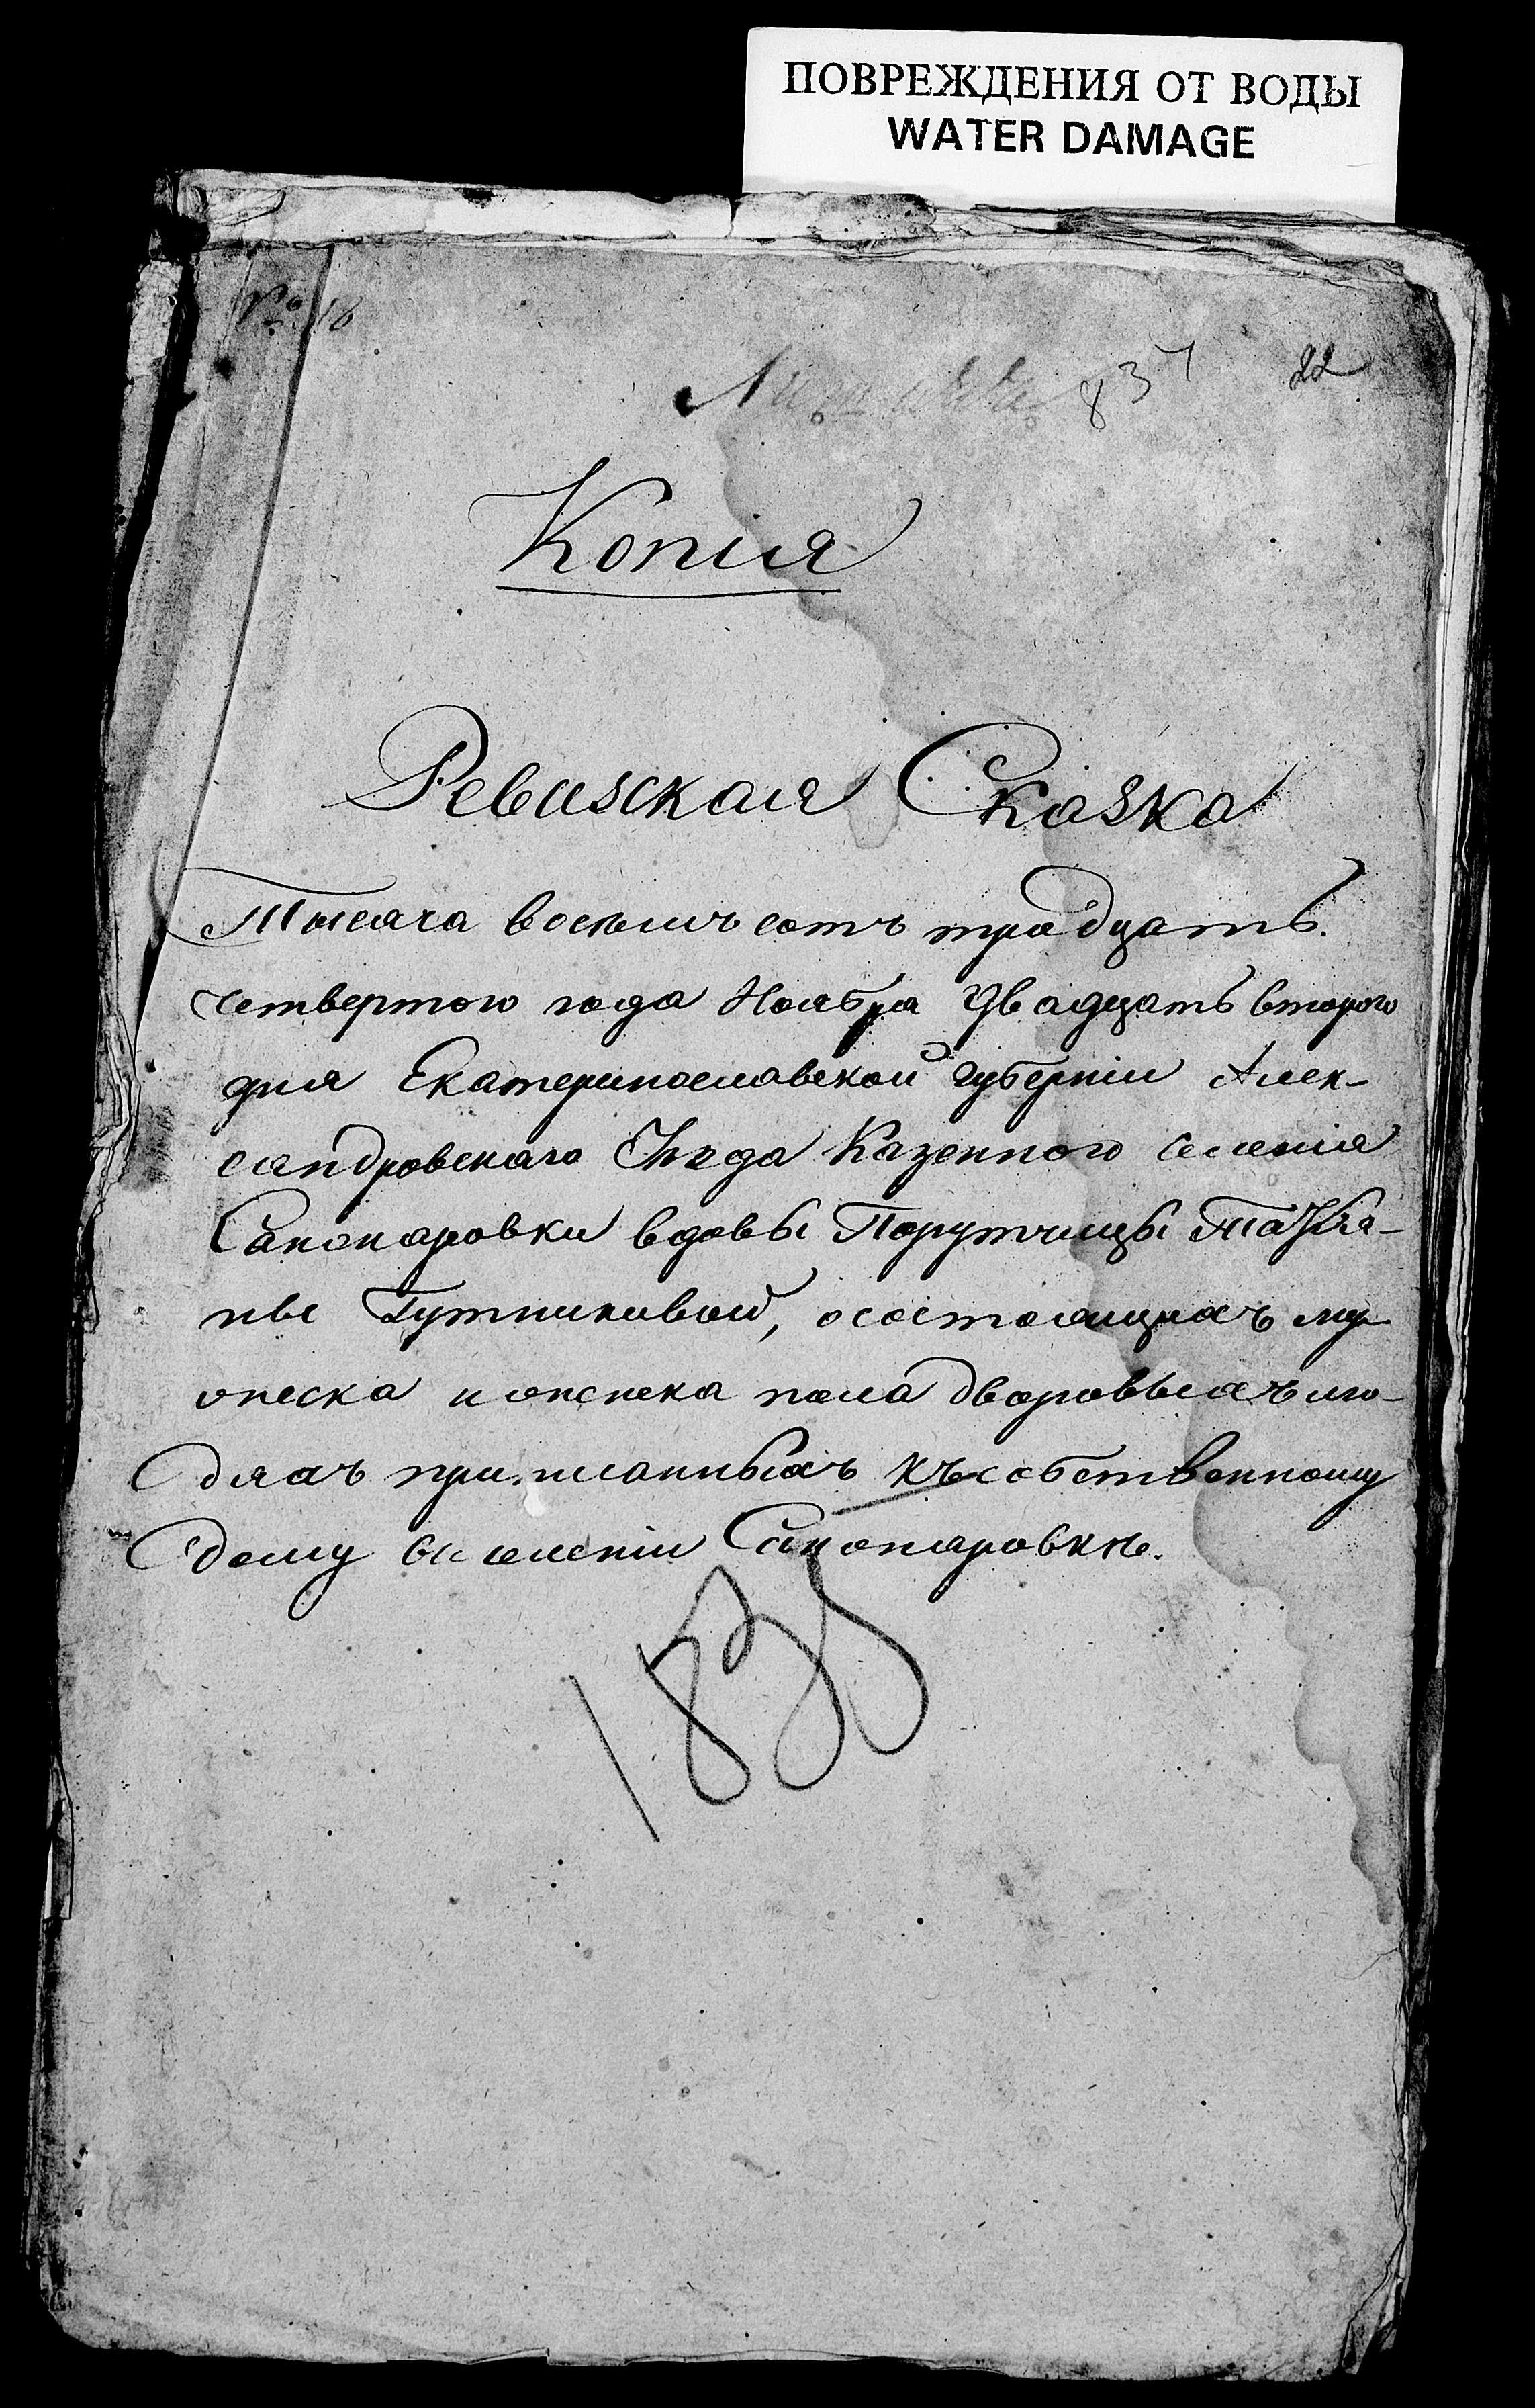 ПОВРЕЖДЕНИЯ ОТ ВОДЫ
WATER DAMAGE
№ 18
837
22
Копія
Ревизская Сказка
Тысяча восемь сотъ тридцать
четвертого года Ноября двадцать второго
дня Екатеринославской губерніи Алек-
сандровскаго Уѣзда Казенного селенія
вдовы Порутчицы Татья-
ны Гутниковой, осостоящихъ му-
жеска иженска пола дворовыхъ лю-
дяхъ приписанныхъ къ собственному
дому селеніи
1835